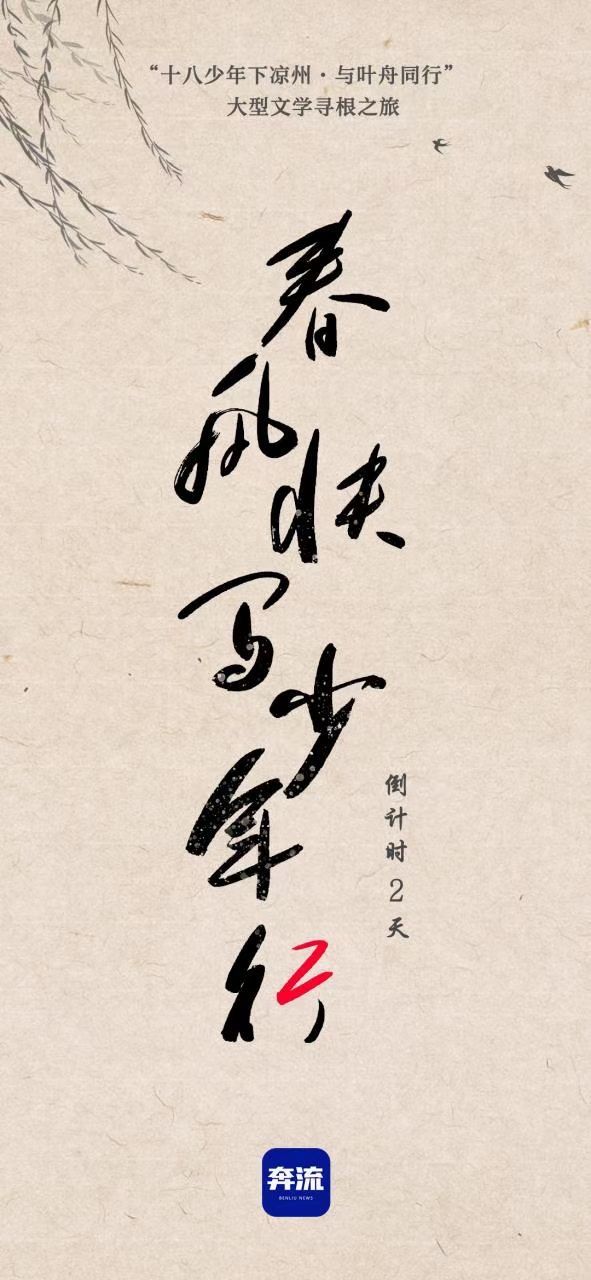 “十八少年下凉州·与叶舟同行”
大型文学寻根之旅
春风快写少年行
倒计时2天
奔流
BENLIU NEWS